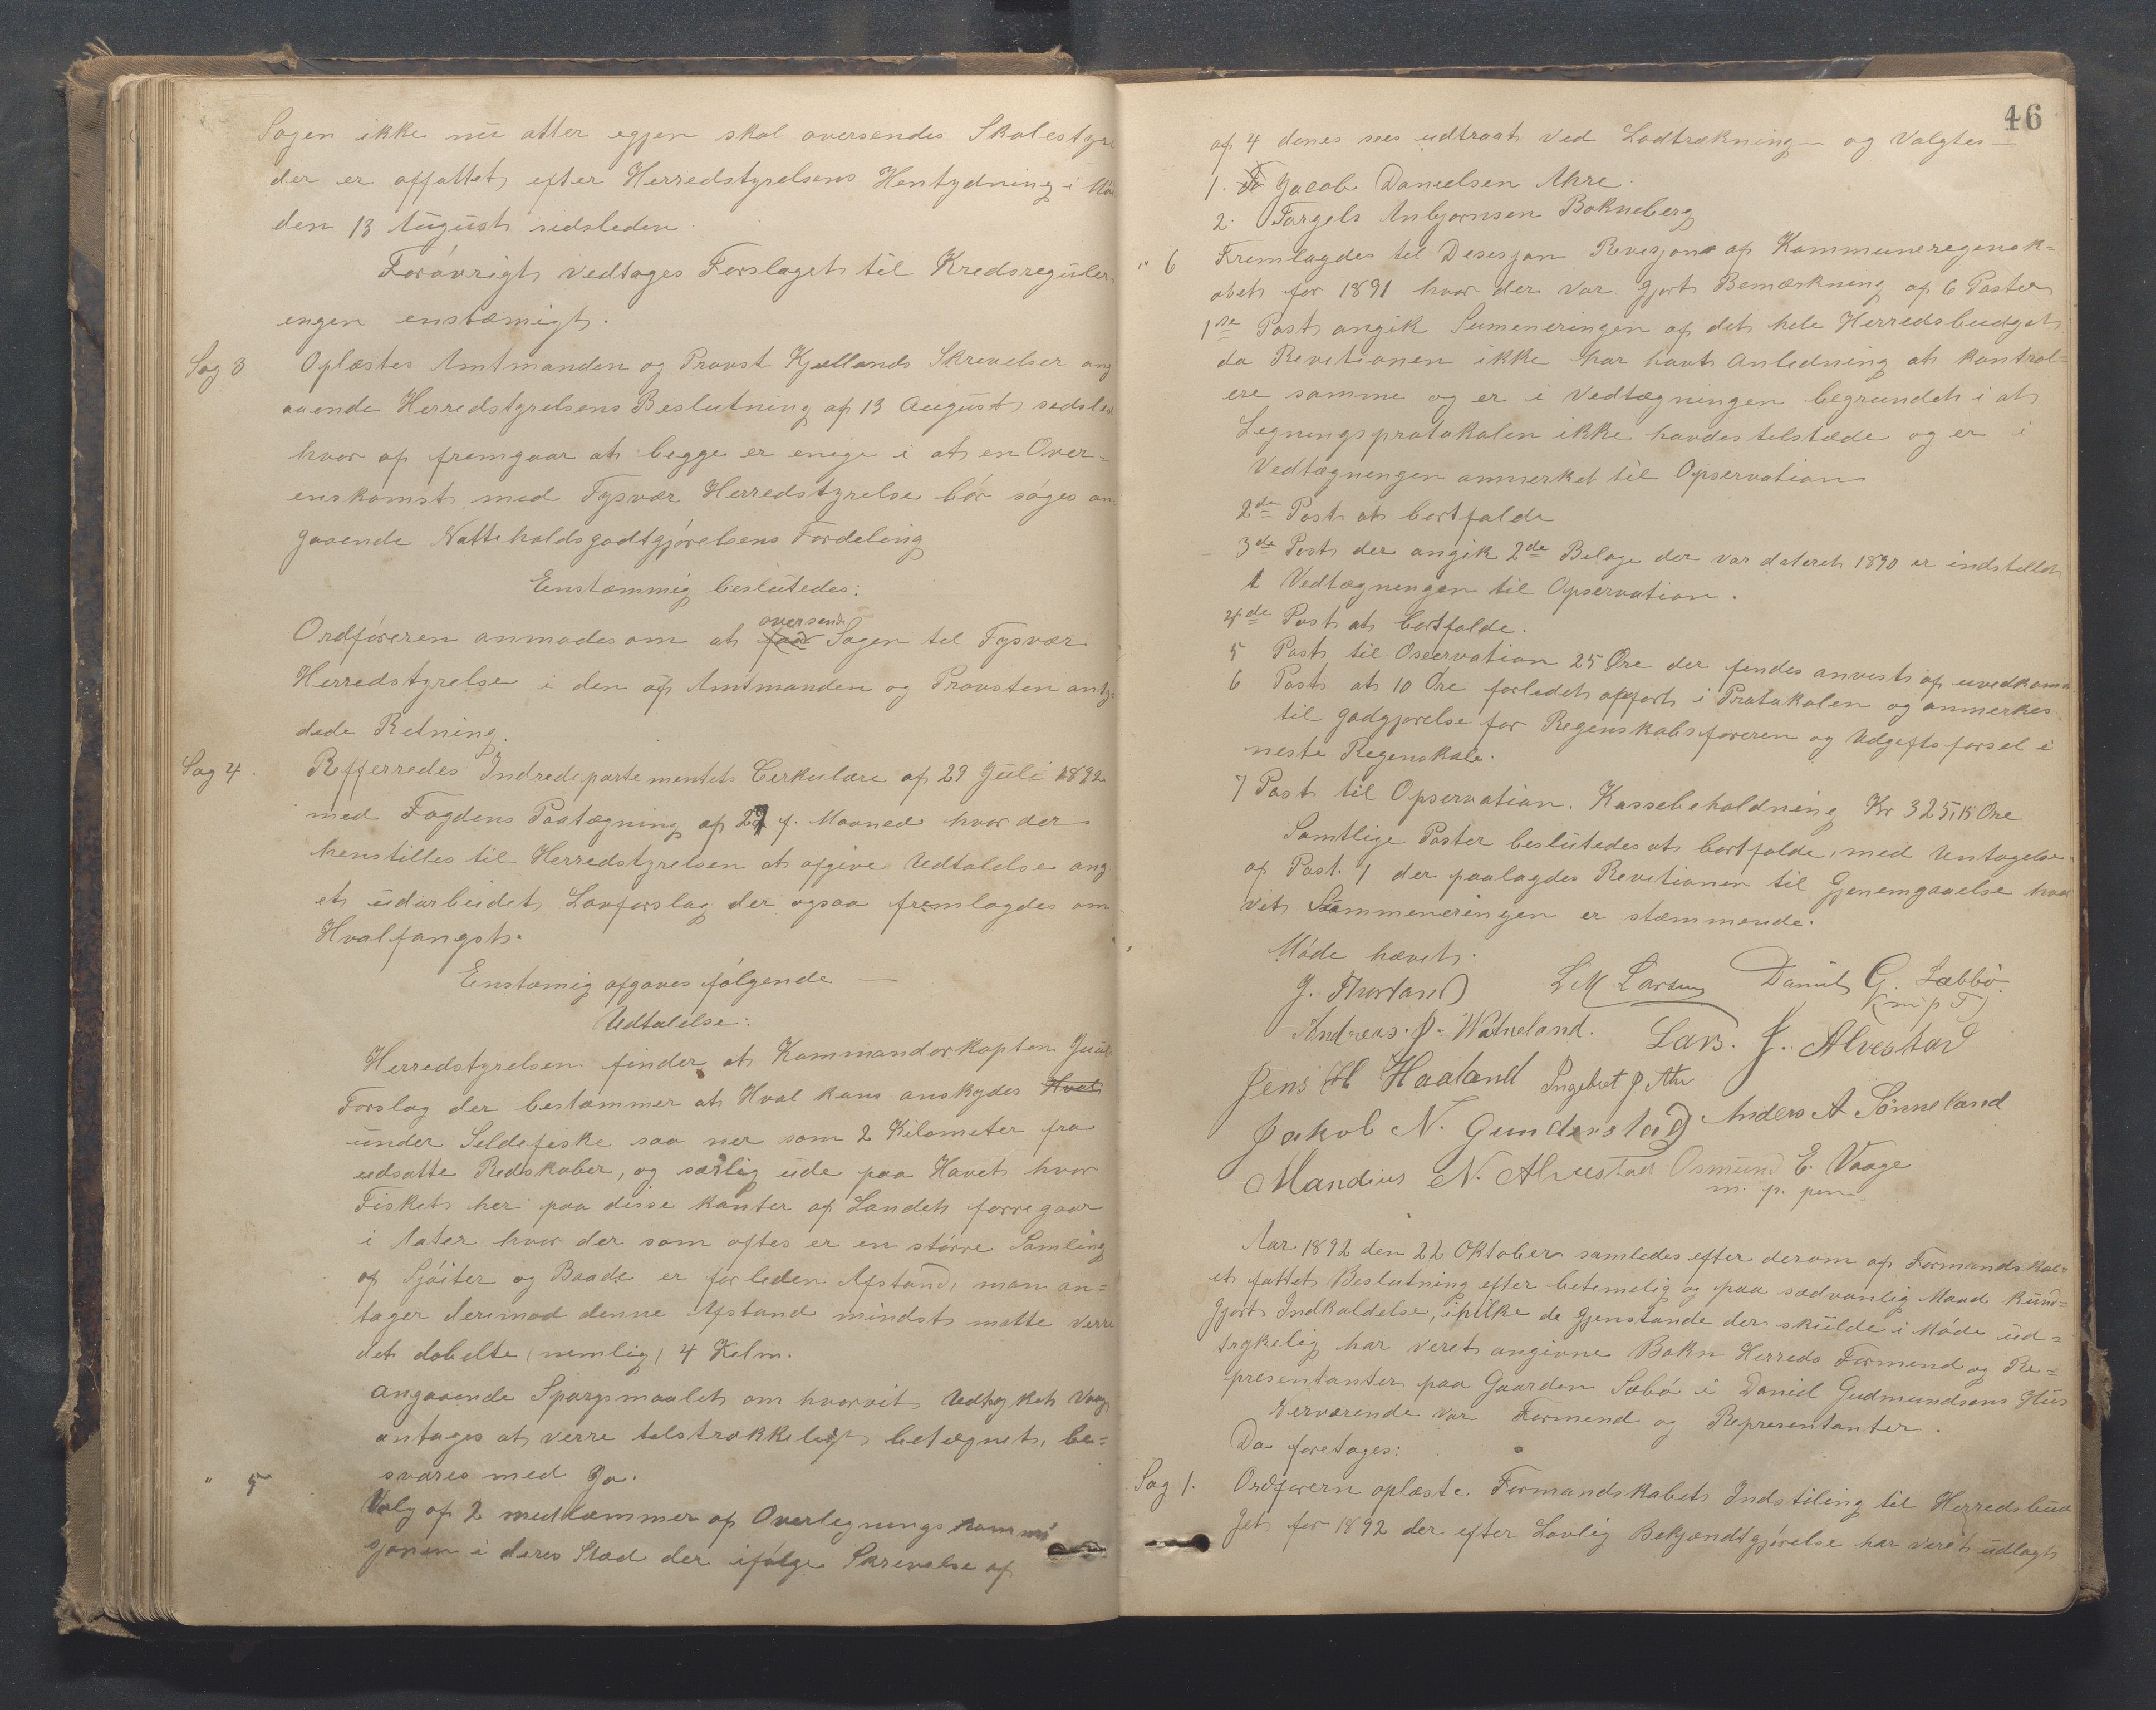 Sagen ikke nu atter egjen skal oversendes Skolestyre
der er affattet efter Herredstyrelsens Hentydning i
den 13 August sidsleden.
Forøvrigt vedtages Forslaget til Kredsreguler-
engen enstæmigt.
Sag 3 Oplæstes Amtmanden og Provst Kjellands Skrevelser ang
aaende Herredstyrelsens Beslutning af 13 August sedsled
hvor af fremgaar at begge er enige i at en Over=
enskomst med Tysvær Herredstyrelse bør søges an
gaaende Natteholdsgodtgjørelsens Fordeling
Eenstæmmig beslutedes:
oversende
Ordføreren anmodes om at Sagen til Tysvær
Herredstyrelse i den af Amtmanden og Provsten anty-
dede Retning.
Sag 4. Refferredes Indredepartementets Cerkulære af 29 Juli 1892
med Fogdens Paategning af 27 f. Maaned hvor der
henstilles til Herredstyrelsen at afgive Udtalelse ang
et udarbeidet Lovforslag der ogsaa fremlagdes om
Hvalfangst.
Enstæmig afgaves følgende —
Udtalelse:
Herredstyrelsen finder at Kommandørkapten Juul
Forslag der bestæmmer at Hval kans anskydes Hval
under Seldefiske saa ner som 2 Kilometer fra
udsatte Redskaber, og særlig ude paa Havet hvor
Fisket her paa disse kanter af Landet forregaar
i Nater hvor der som oftes er en større Samling
af Sjøiter og Baade er for leden Afstand, man an=
tager derimod denne Afstand mindst matte verre
det dobelte (nemlig) 4 Kelm.
angaaende Spørgsmaalet om hvorvit Udtrykket Vaag
antages at verre telstrækkeligt betegnet, be=
svares med Ja.
" 5 Valg af 2 medlæmmer af Overlegningskommi
sjonen i deres Sted der ifølge Skrevelse af
46
af 4 denes sees udtraat ved Lodtrækning — og Valgtes —
1. Jacob Danielsen Akre.
2. Torgels Anbjørnsen Bokneberg
" 6 Fremlagdes tel Desesjon Revesjone af Kommuneregensk=
abet for 1891 hvor der var gjort Bemærkning af 6 Poster
1ste Post angik Sumeneringen af det hele Herredsbudget
da Revetionen ikke har havt Anledning at kontrol=
ere samme og er i Vedtægningen begrundet i at
Legningsprotokolen ikke havdes tilstæde og er i
Vedtægnengen anmerket til Opservation
2de Post at bortfalde
3de Post der angik 2de Belage der var dateret 1890 er indstellet
i Vedtægnengen til Opservation.
4de Post at bortfalde.
5 Post til Oseervation 25 Øre der fendes anvist af uvedkomm
6 Post at 10 Øre forledet opført i Protokolen og anmerkes
til godgjørelse for Regenskabsføreren og Udgiftsførsel i
neste Regenskab.
7 Post til Opservation. Kassebeholdning Kr 325,15 Øre
Samtlige Poster beslutedes at bortfalde, med Untagelse
af Post. 1 der paalagdes Revetionen til Gjenemgaaelse hvor
vit Summeneringen er stæmmende.
Møde hævet.
J. Thorland L M Larsen Daniel G. Læbbø.
Andreas. J. Watneland. Lars. J. Alvestad
Jens H Haaland Ingebret J Are
Jakob N. Gundersland Anders A Sønneland
Mandius N. Alvestad Osmund E. Vaage
m. p. pen
Aar 1892 den 22 Oktober samledes efter derom af Formandskab=
et fattet Beslutning efter betemelig og paa sædvanlig Maad kund=
gjort Indkaldelse, ihvilke de Gjenstande der skulde i Møde ud=
trykelig har veret angivne Bokn Herreds Formend og Re=
presentanter paa Gaarden Sæbø i Daniel Gudmundsens Hus
Verværende var Formend og Representanter.
Da foretages:
Sag 1. Ordførern oplæste. Formandskabets Indstiling til Herredsbud
get for 1892 der efter Lovlig Bekjændtgjørelse har veret udlagt